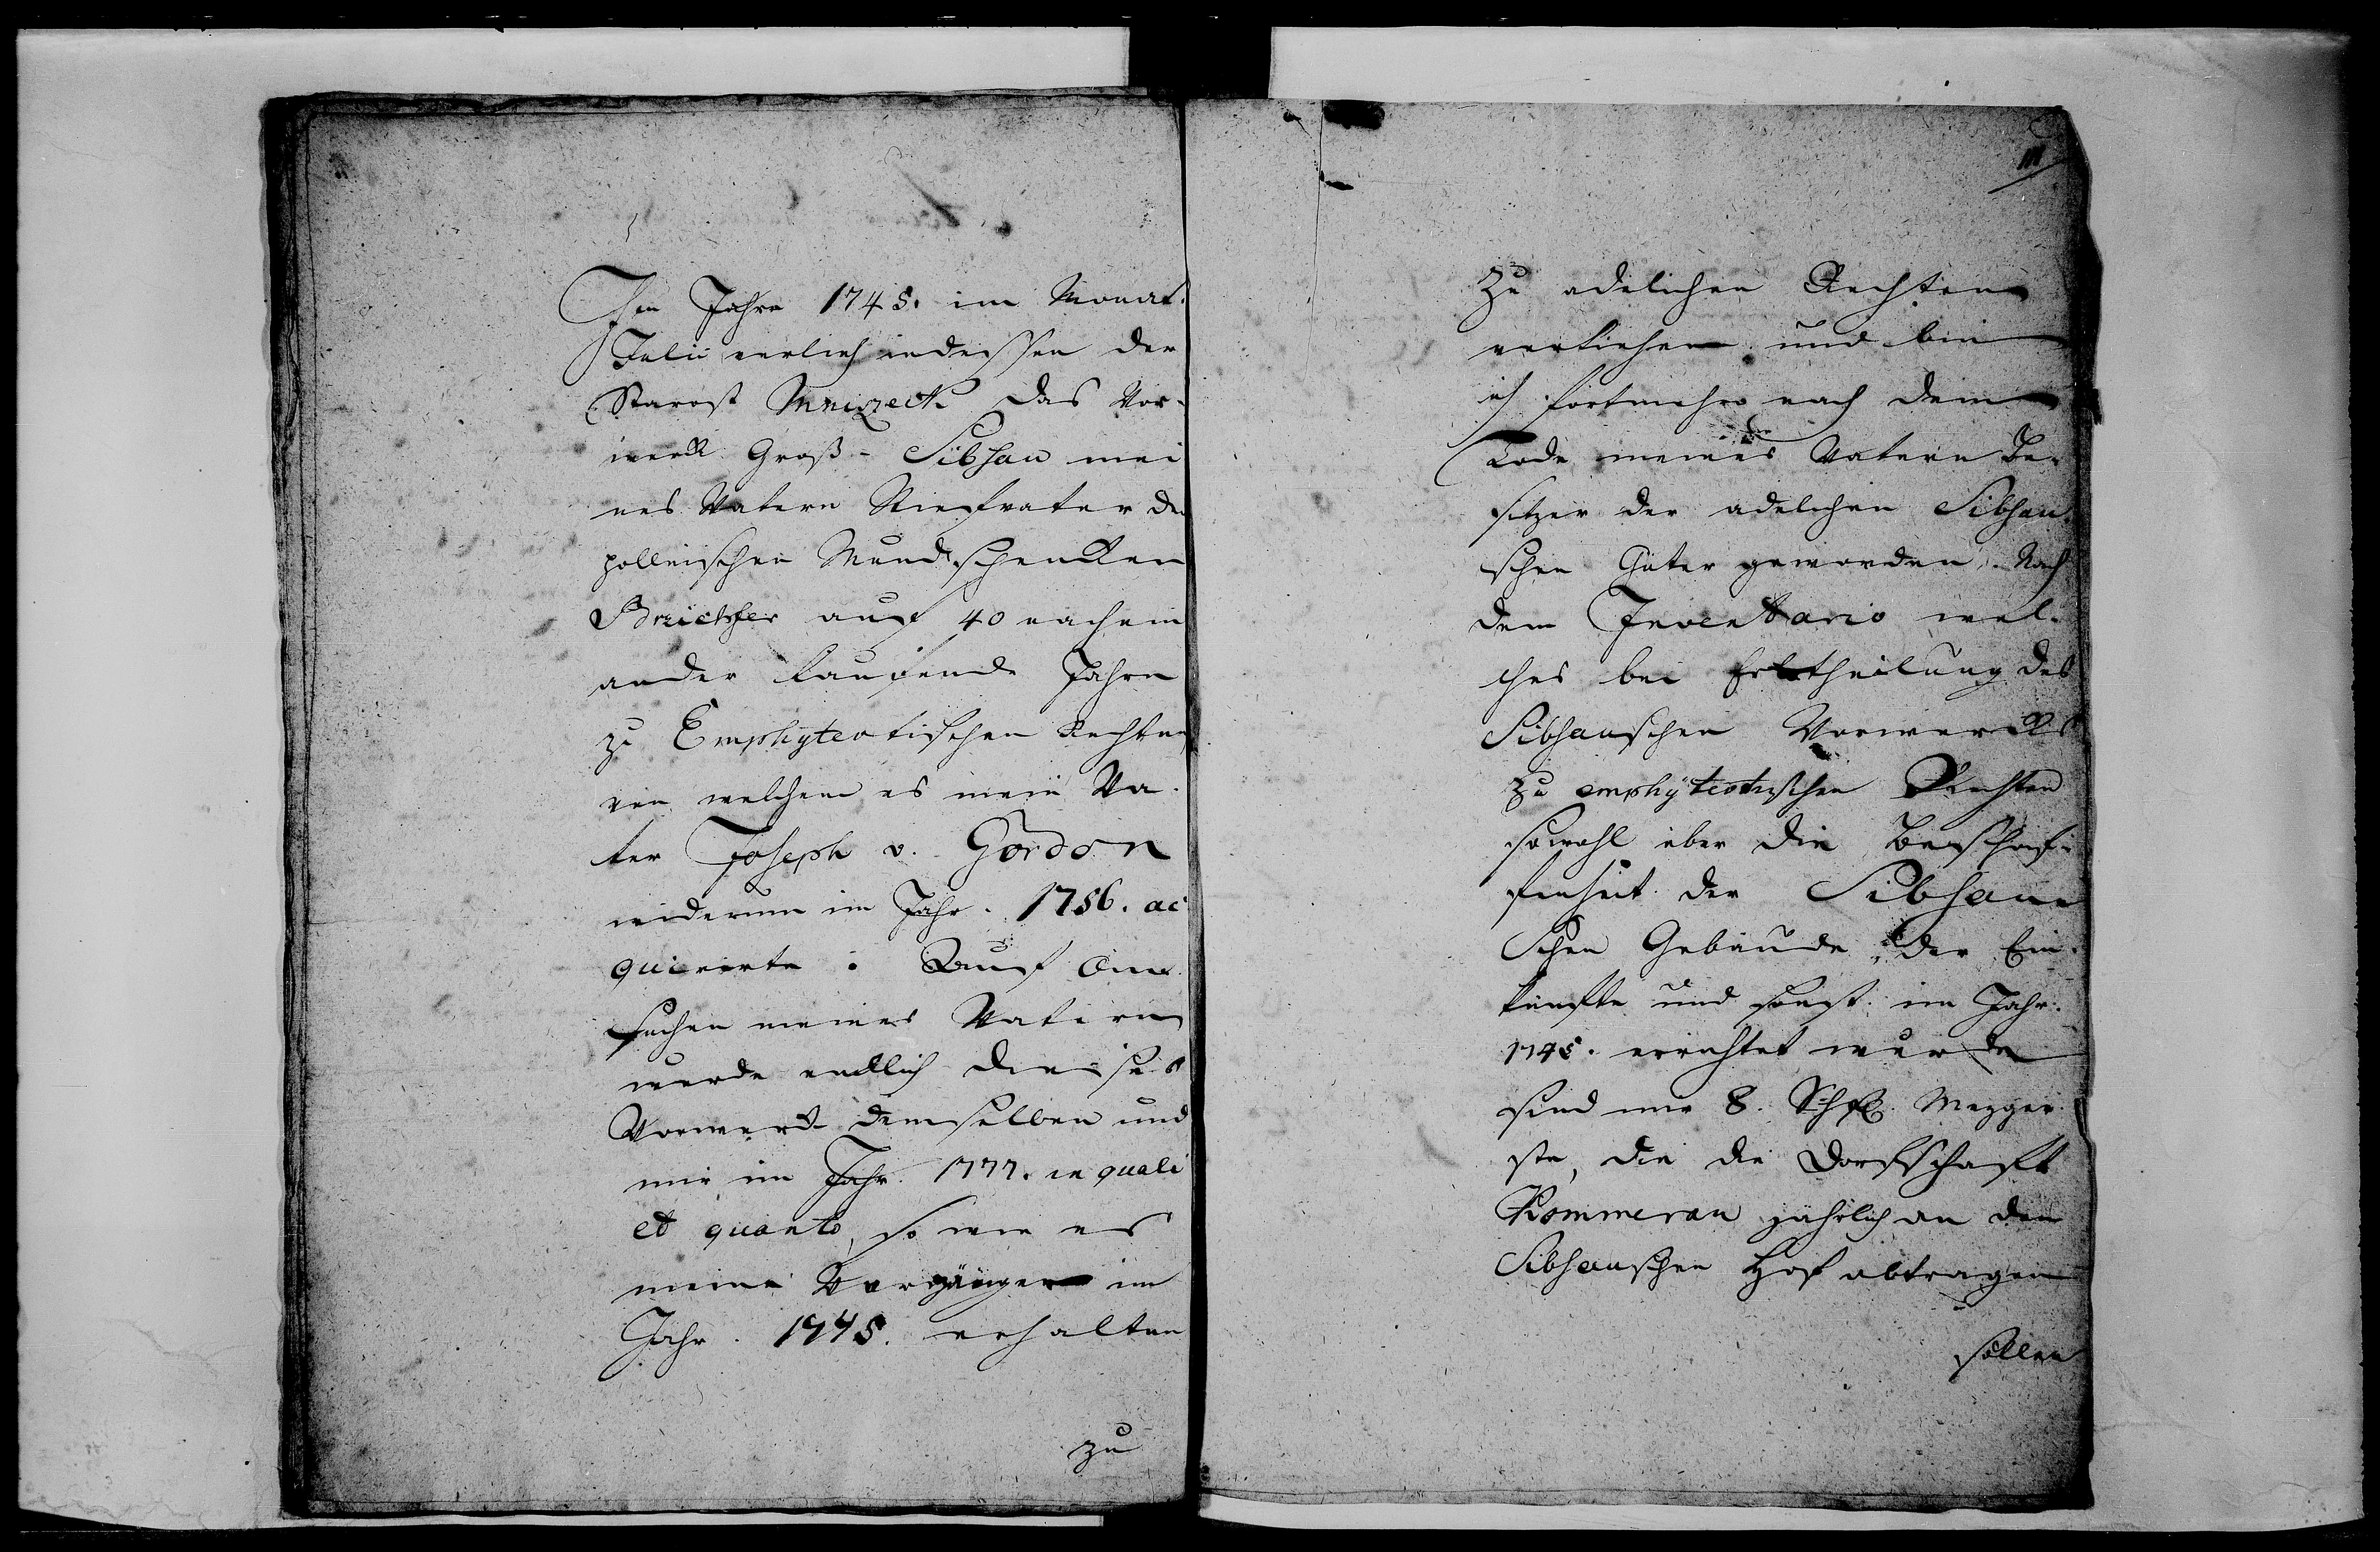 Im Jahre 1745. im Monat
Julii verlieh indessen der
Starost Mnizeck das Vor-
werk Groß-Sibsau mei
nes Vatern Stiefvater den
pollnischen Mundschenken
auf 40 nachein
ander laufende Jahre
zu Emphyteotischen Rechten
von welchem es mein Va-
ter Joseph v. Gordon
widerum im Jahr 1756. ac
quirirte. Auf An
suchen meines Vatern
wurde endlich dieses
Vorwerk demselben und
mir im Jahr 1777. in quali
et quanto, so wie es
meine Vorgänger im
Jahr 1745. erhalten
zu
111
zu adelichen Rechten
verliehen und bin
ich fortmehro nach dem
Tode meines Vatern Be-
sitzer der adelichen Sibsau-
schen Güter geworden. Nach
dem Inventario wel-
ches bei Ertheilung des
Sibsauschen Vorwerks
zu emphyteotischen Rechten
sowohl über die Beschaf-
fenheit der Sibsau
schen Gebäude, der Ein-
künfte und sonst im Jahr
1745. errichtet wurde
sind mir 8. Schfl. Mezger
ste, die die Dorfschaft
Kommerau jährlich an den
Sibsauschen Hof abtragen
sollen